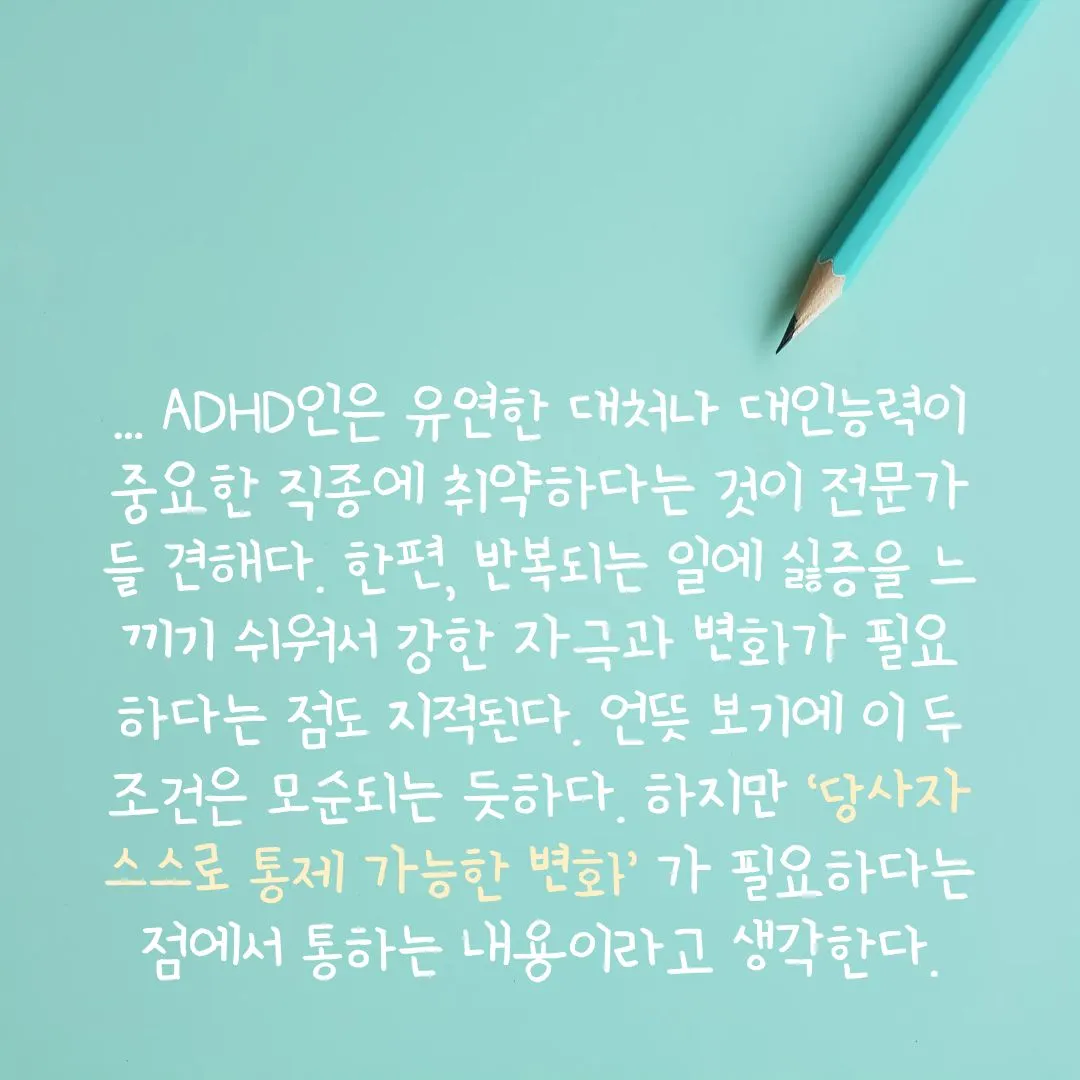 ... ADHD인은 유연한 대처나 대인능력이
중요한 직종에 취약하다는 것이 전문가
들 견해다. 한편, 반복되는 일에 싫증을 느
끼기 쉬워서 강한 자극과 변화가 필요
하다는 점도 지적된다. 언뜻 보기에 이 두
조건은 모순되는 듯하다. 하지만 ‘당사자
스스로 통제 가능한 변화’ 가 필요하다는
점에서 통하는 내용이라고 생각한다.